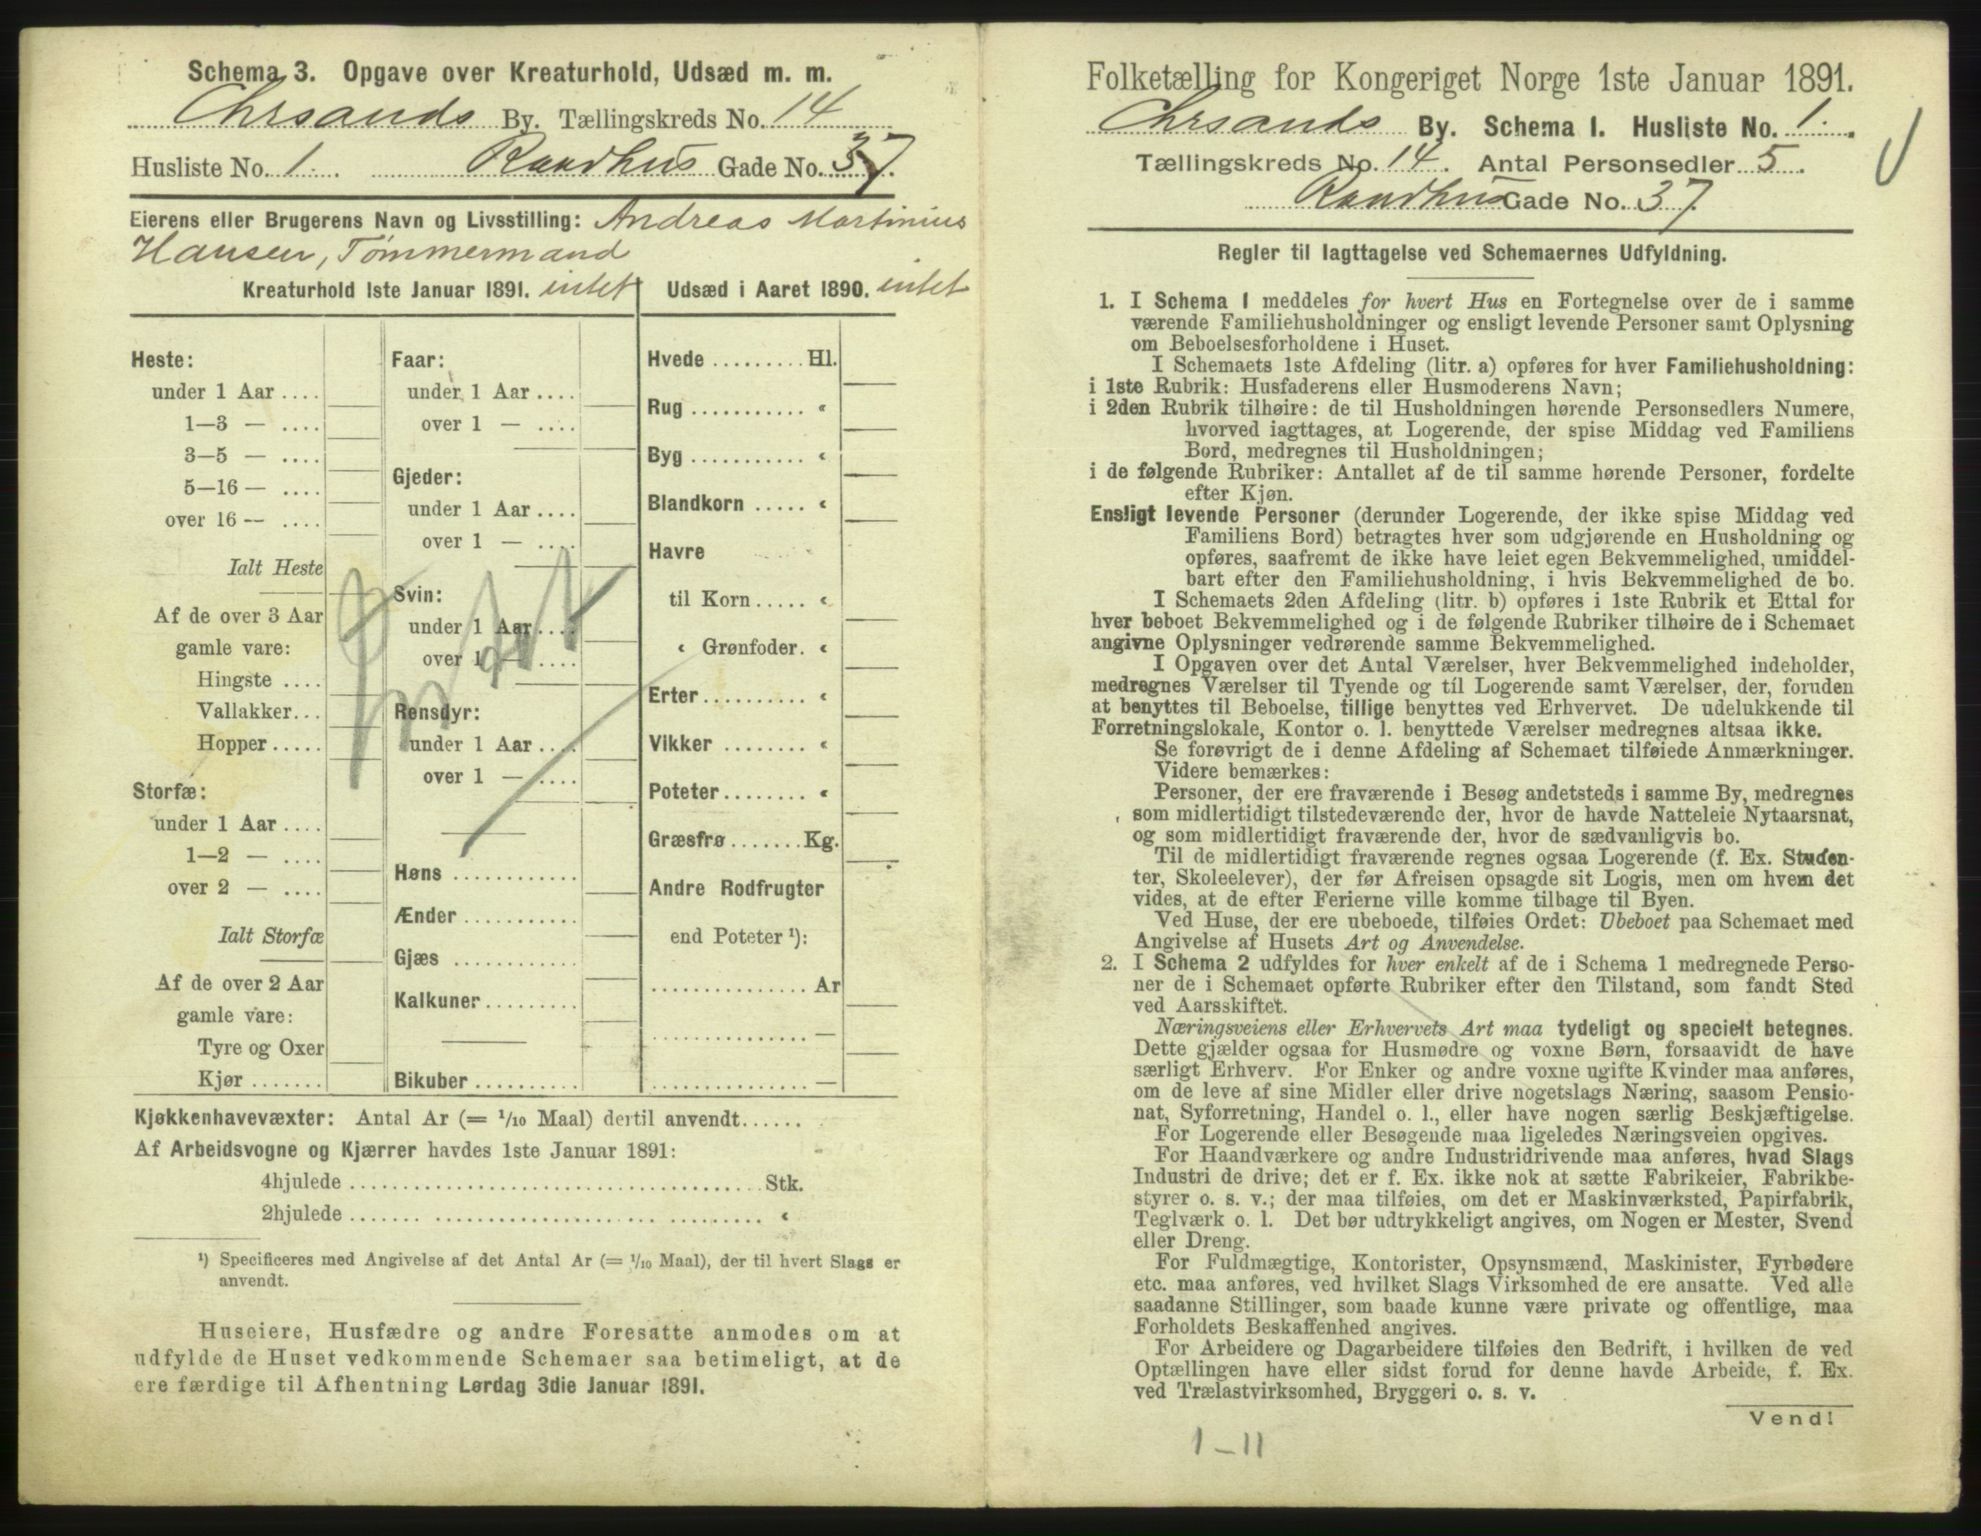 Schema 3. Opgave over Kreaturhold, Udsæd m. m.
Chrsands By. Tællingskreds No. 14
Husliste No. 1. Raadhus Gade No. 37.
Eierens eller Brugerens Navn og Livsstilling: Andreas Martinius
Hansen, Tømmermand
Kreaturhold 1ste Januar 1891. intet
Udsæd i Aaret 1890. intet
Heste:
under 1 Aar ....
1—3 — ....
3—5 — ....
5—16 — ....
over 16 — ....
Ialt Heste
Af de over 3 Aar
gamle vare:
Hingste ....
Vallakker...
Hopper.....
Storfæ:
under 1 Aar ....
1—2 — ....
over 2 — ....
Ialt Storfæ
Af de over 2 Aar
gamle vare:
Tyre og Oxer
Kjør .......
Faar:
under 1 Aar ....
over 1 — ....
Gjeder:
under 1 Aar ....
over 1 — ....
Svin:
under 1 Aar ....
over 1 — ....
Rensdyr:
under 1 Aar ....
over 1 — ....
Høns ............
Ænder...........
Gjæs ............
Kalkuner.........
Bikuber ..........
Hvede ......... Hl.
Rug ........... “
Byg ........... “
Blandkorn ..... “
Havre
til Korn..... “
“ Grønfoder. “
Erter.......... “
Vikker ........ “
Poteter........ “
Græsfrø.......Kg.
Andre Rodfrugter
end Poteter ¹):
............... Ar
............... —
............... —
Kjøkkenhavevæxter: Antal Ar (= 1/10 Maal) dertil anvendt......
Af Arbeidsvogne og Kjærrer havdes 1ste Januar 1891:
4hjulede ........................................ Stk.
2hjulede ........................................ “
¹) Specificeres med Angivelse af det Antal Ar (= 1/10 Maal), der til hvert Slags er
anvendt.
Huseiere, Husfædre og andre Foresatte anmodes om at
udfylde de Huset vedkommende Schemaer saa betimeligt, at de
ere færdige til Afhentning Lørdag 3die Januar 1891.
Folketælling for Kongeriget Norge 1ste Januar 1891.
Chrsands By. Schema 1. Husliste No. 1.
Tællingskreds No. 14. Antal Personsedler 5.
Raadhus Gade No. 37.
Regler til Iagttagelse ved Schemaernes Udfyldning.
1. I Schema 1 meddeles for hvert Hus en Fortegnelse over de i samme
værende Familiehusholdninger og ensligt levende Personer samt Oplysning
om Beboelsesforholdene i Huset.
I Schemaets 1ste Afdeling (litr. a) opføres for hver Familiehusholdning:
i 1ste Rubrik: Husfaderens eller Husmoderens Navn;
i 2den Rubrik tilhøire: de til Husholdningen hørende Personsedlers Numere,
hvorved iagttages, at Logerende, der spise Middag ved Familiens
Bord, medregnes til Husholdningen;
i de følgende Rubriker: Antallet af de til samme hørende Personer, fordelte
efter Kjøn.
Ensligt levende Personer (derunder Logerende, der ikke spise Middag ved
Familiens Bord) betragtes hver som udgjørende en Husholdning og
opføres, saafremt de ikke have leiet egen Bekvemmelighed, umiddel-
bart efter den Familiehusholdning, i hvis Bekvemmelighed de bo.
I Schemaets 2den Afdeling (litr. b) opføres i 1ste Rubrik et Ettal for
hver beboet Bekvemmelighed og i de følgende Rubriker tilhøire de i Schemaet
angivne Oplysninger vedrørende samme Bekvemmelighed.
I Opgaven over det Antal Værelser, hver Bekvemmelighed indeholder,
medregnes Værelser til Tyende og til Logerende samt Værelser, der, foruden
at benyttes til Beboelse, tillige benyttes ved Erhvervet. De udelukkende til
Forretningslokale, Kontor o. l. benyttede Værelser medregnes altsaa ikke.
Se forøvrigt de i denne Afdeling af Schemaet tilføiede Anmærkninger.
Videre bemærkes:
Personer, der ere fraværende i Besøg andetsteds i samme By, medregnes
som midlertidigt tilstedeværende der, hvor de havde Natteleie Nytaarsnat,
og som midlertidigt fraværende der, hvor de sædvanligvis bo.
Til de midlertidigt fraværende regnes ogsaa Logerende (f. Ex. Studen-
ter, Skoleelever), der før Afreisen opsagde sit Logis, men om hvem det
vides, at de efter Ferierne ville komme tilbage til Byen.
Ved Huse, der ere ubeboede, tilføies Ordet: Ubeboet paa Schemaet med
Angivelse af Husets Art og Anvendelse.
2. I Schema 2 udfyldes for hver enkelt af de i Schema 1 medregnede Perso-
ner de i Schemaet opførte Rubriker efter den Tilstand, som fandt Sted
ved Aarsskiftet.
Næringsveiens eller Erhvervets Art maa tydeligt og specielt betegnes.
Dette gjælder ogsaa for Husmødre og voxne Børn, forsaavidt de have
særligt Erhverv. For Enker og andre voxne ugifte Kvinder maa anføres,
om de leve af sine Midler eller drive nogetslags Næring, saasom Pensio-
nat, Syforretning, Handel o. l., eller have nogen særlig Beskjæftigelse.
For Logerende eller Besøgende maa ligeledes Næringsveien opgives.
For Haandværkere og andre Industridrivende maa anføres, hvad Slags
Industri de drive; det er f. Ex. ikke nok at sætte Fabrikeier, Fabrikbe-
styrer o. s. v.; der maa tilføies, om det er Maskinværksted, Papirfabrik,
Teglværk o. l. Det bør udtrykkeligt angives, om Nogen er Mester, Svend
eller Dreng.
For Fuldmægtige, Kontorister, Opsynsmænd, Maskinister, Fyrbødere
etc. maa anføres, ved hvilket Slags Virksomhed de ere ansatte. Ved alle
saadanne Stillinger, som baade kunne være private og offentlige, maa
Forholdets Beskaffenhed angives.
For Arbeidere og Dagarbeidere tilføies den Bedrift, i hvilken de ved
Optællingen have eller sidst forud for denne havde Arbeide, f. Ex.
ved Trælastvirksomhed, Bryggeri o. s. v.
Vend!
1–11